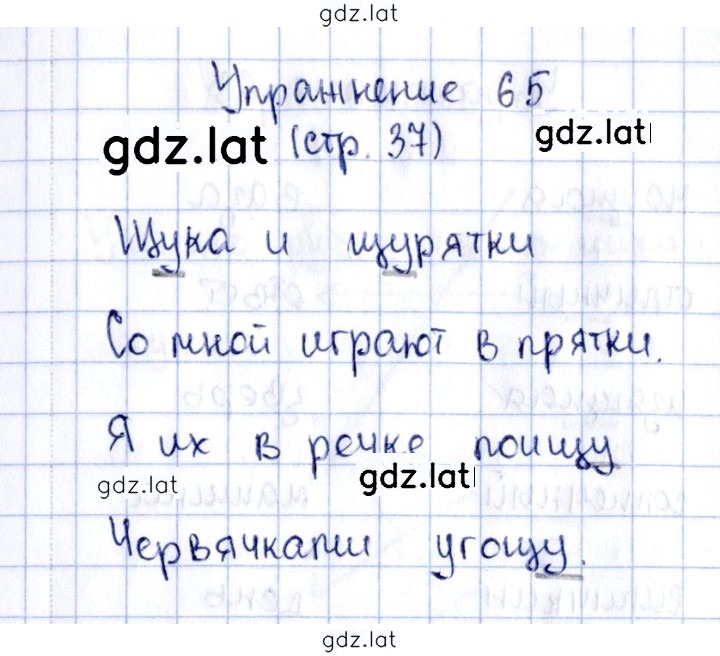 gdz.lat
Упражнение 65
gdz.lat (стр. 37) gdz.lat
Щука и щурятки
Со мной играют в прятки.
Я их в речке поищу
gdz.lat gdz.lat
Червячками угощу.
gdz.lat